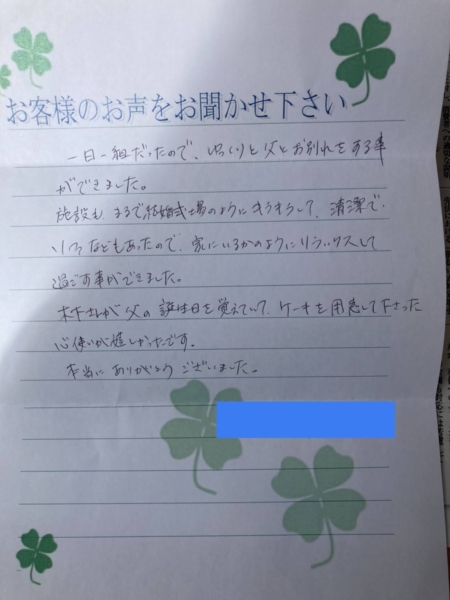 お客様のお声をお聞かせ下さい
一日一組だったので、ゆっくりと父とお別れをする事
ができました。
施設も、まるで結婚式場のようにキラキラして、清潔で、
ソファなどもあったので、家にいるかのようにリラックスして
過ごす事ができました。
木下さんが父の誕生日を覚えていて、ケーキを用意して下さった
心使いが嬉しかったです。
本当にありがとうございました。